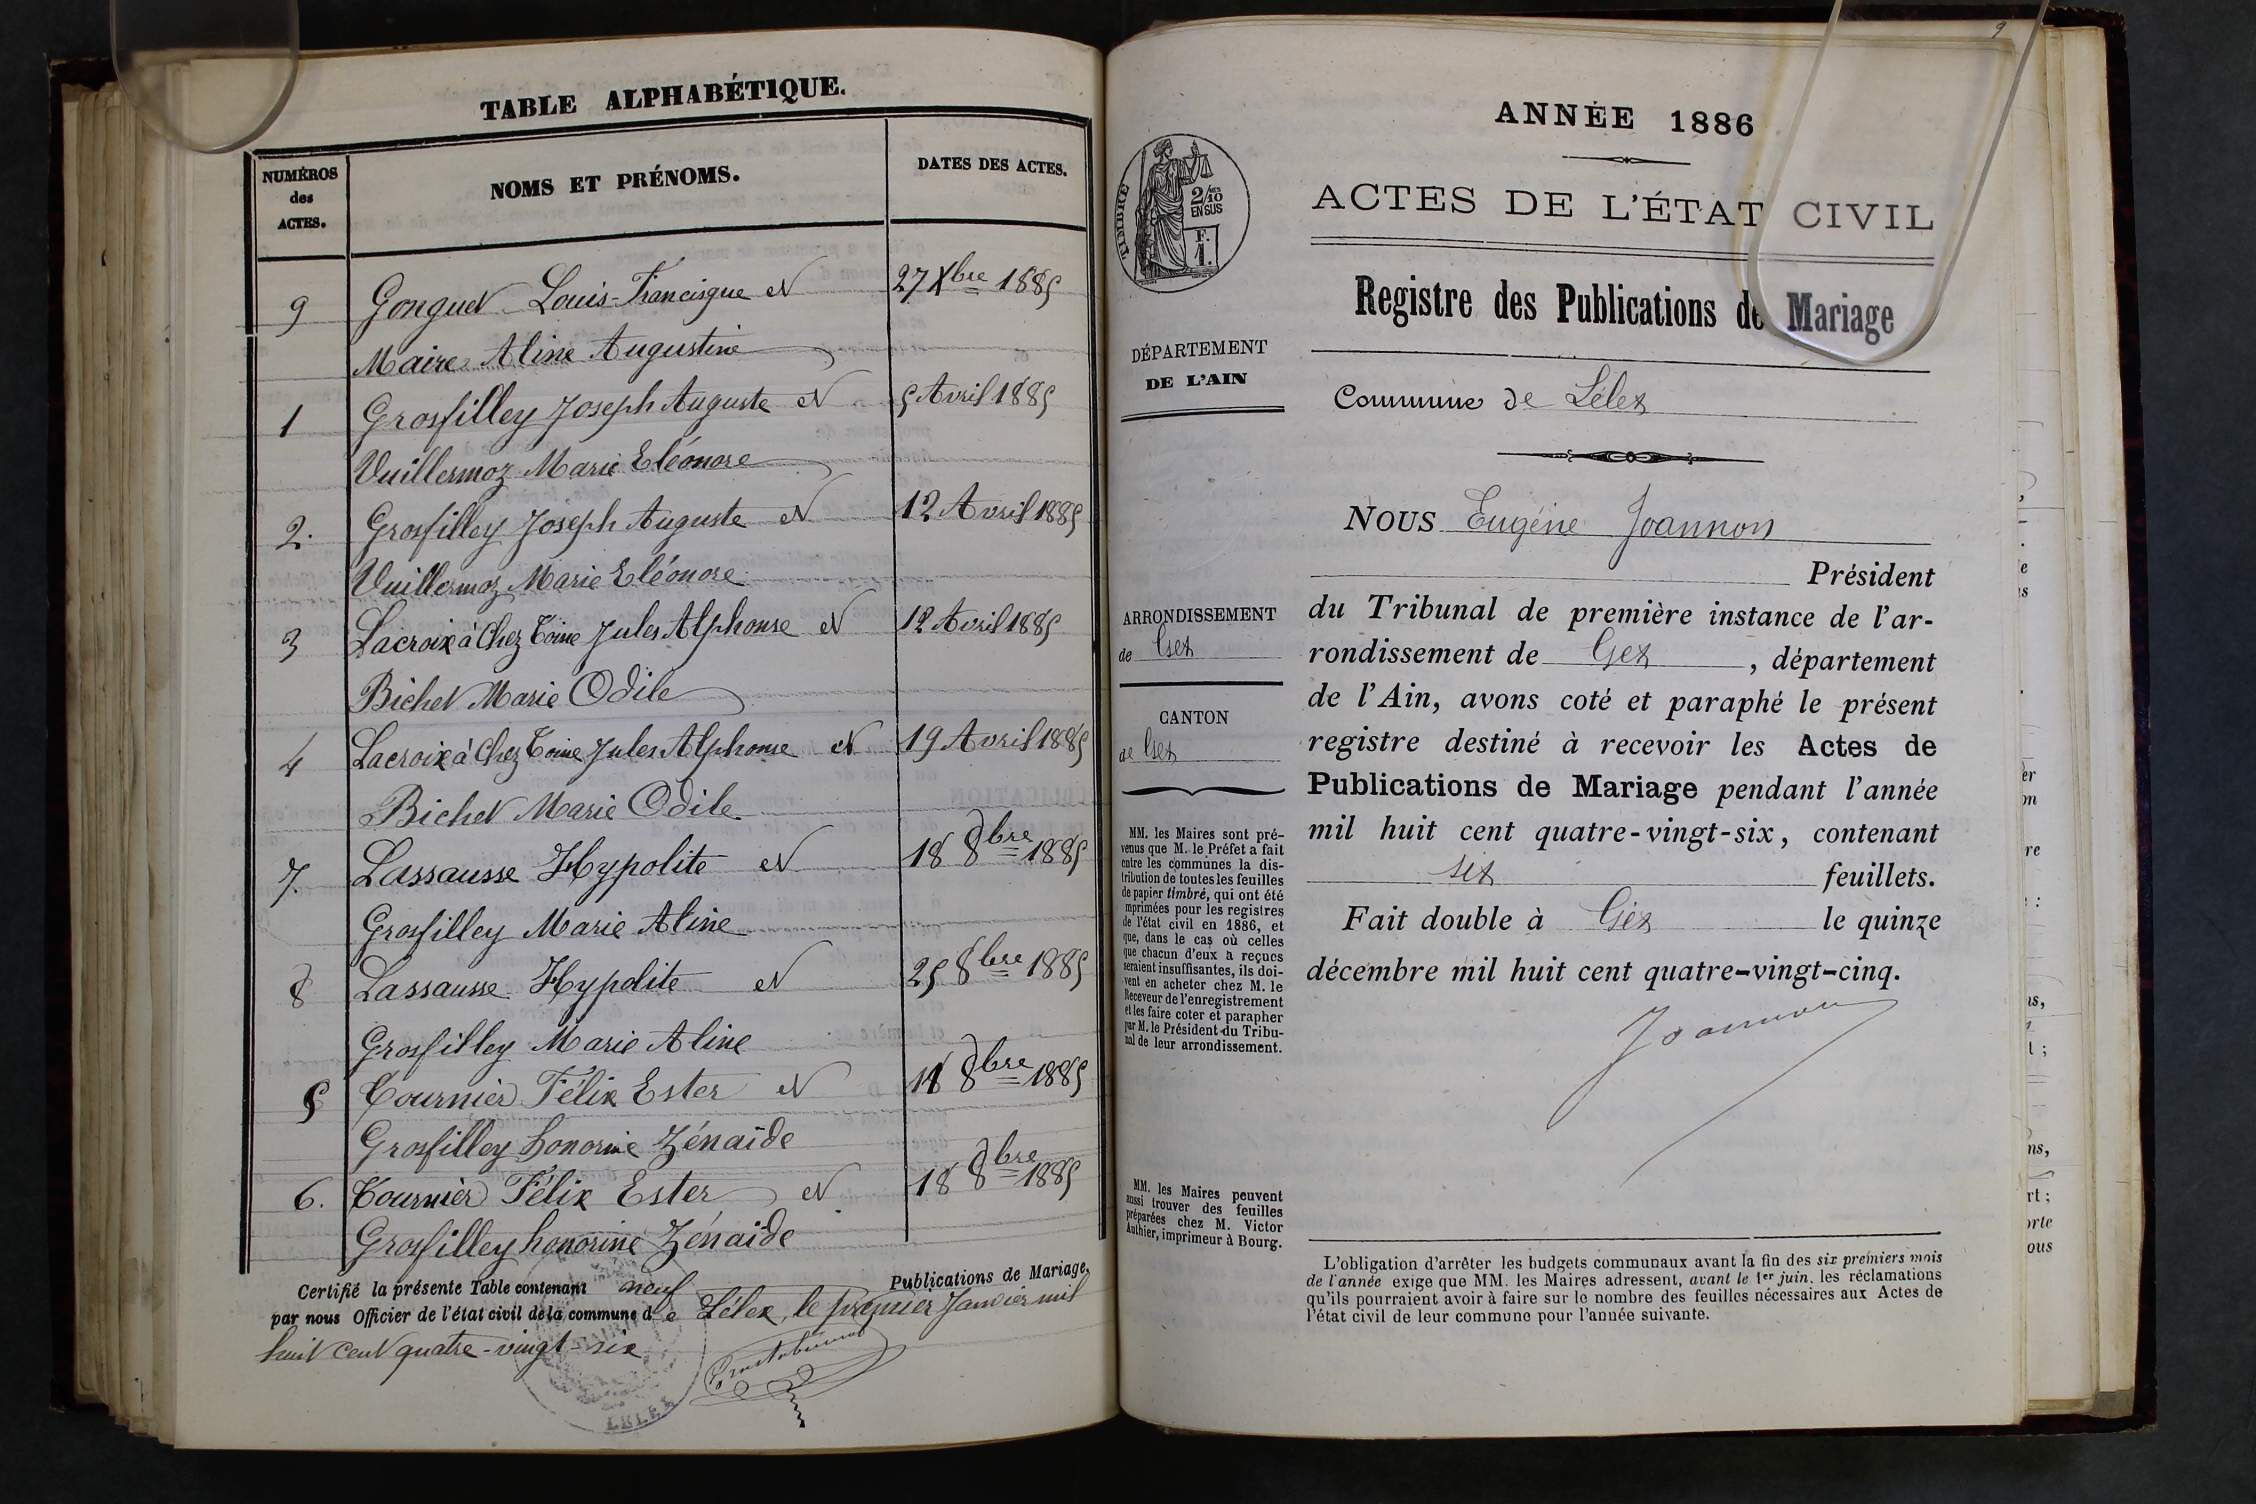 TABLE ALPHABÉTIQUE.
NUMÉROS des ACTES.
NOMS ET PRÉNOMS.
DATES DES ACTES.
9 Gonguet Louis-Francisque et 27 Xbre 1885
Maire Aline Augustine
1 Grosfilley Joseph Auguste et 5 Avril 1885
Vuillermoz Marie Eléonore
2. Grosfilley Joseph Auguste et 12 Avril 1885
Vuillermoz Marie Eléonore
3 Lacroix à Chez Toine Jules Alphonse et 12 Avril 1885
Bichet Marie Odile
4 Lacroix à Chez Toine Jules Alphonse et 19 Avril 1885
Bichet Marie Odile.
7. Lassausse Hypolite et 18 8bre 1885
Grosfilley Marie Aline
8 Lassausse Hypolite et 25 8bre 1885
Grosfilley Marie Aline
5 Tournier Félix Ester et 11 8bre 1885
Grosfilley honorine Zénaïde
6. Tournier Félix Ester et 18 8bre 1885
Grosfilley honorine Zénaïde
Certifié la présente Table contenant neuf Publications de Mariage,
par nous Officier de l'état civil de la commune de Lélex, le premier Janvier mil
huit cent quatre-vingt-six
LELEX
9
ANNÉE 1886
ACTES DE L'ÉTAT CIVIL
Registre des Publications de Mariage
TIMBRE
2/10 EN SUS
F. 1.
DÉPARTEMENT
DE L'AIN
Commune de Lélex
NOUS Eugène Joannon
Président
du Tribunal de première instance de l'ar-
rondissement de Gex, département
de l'Ain, avons coté et paraphé le présent
registre destiné à recevoir les Actes de
Publications de Mariage pendant l'année
mil huit cent quatre-vingt-six, contenant
six feuillets.
Fait double à Gex le quinze
décembre mil huit cent quatre-vingt-cinq.
Joannon
ARRONDISSEMENT
de Gex
CANTON
de Gex
MM. les Maires sont pré-
venus que M. le Préfet a fait
entre les communes la dis-
tribution de toutes les feuilles
de papier timbré, qui ont été
imprimées pour les registres
de l'état civil en 1886, et
que, dans le cas où celles
que chacun d'eux a reçues
seraient insuffisantes, ils doi-
vent en acheter chez M. le
Receveur de l'enregistrement
et les faire coter et parapher
par M. le Président du Tribu-
nal de leur arrondissement.
MM. les Maires peuvent
aussi trouver des feuilles
préparées chez M. Victor
Authier, imprimeur à Bourg.
L'obligation d'arrêter les budgets communaux avant la fin des six premiers mois
de l'année exige que MM. les Maires adressent, avant le 1er juin, les réclamations
qu'ils pourraient avoir à faire sur le nombre des feuilles nécessaires aux Actes de
l'état civil de leur commune pour l'année suivante.